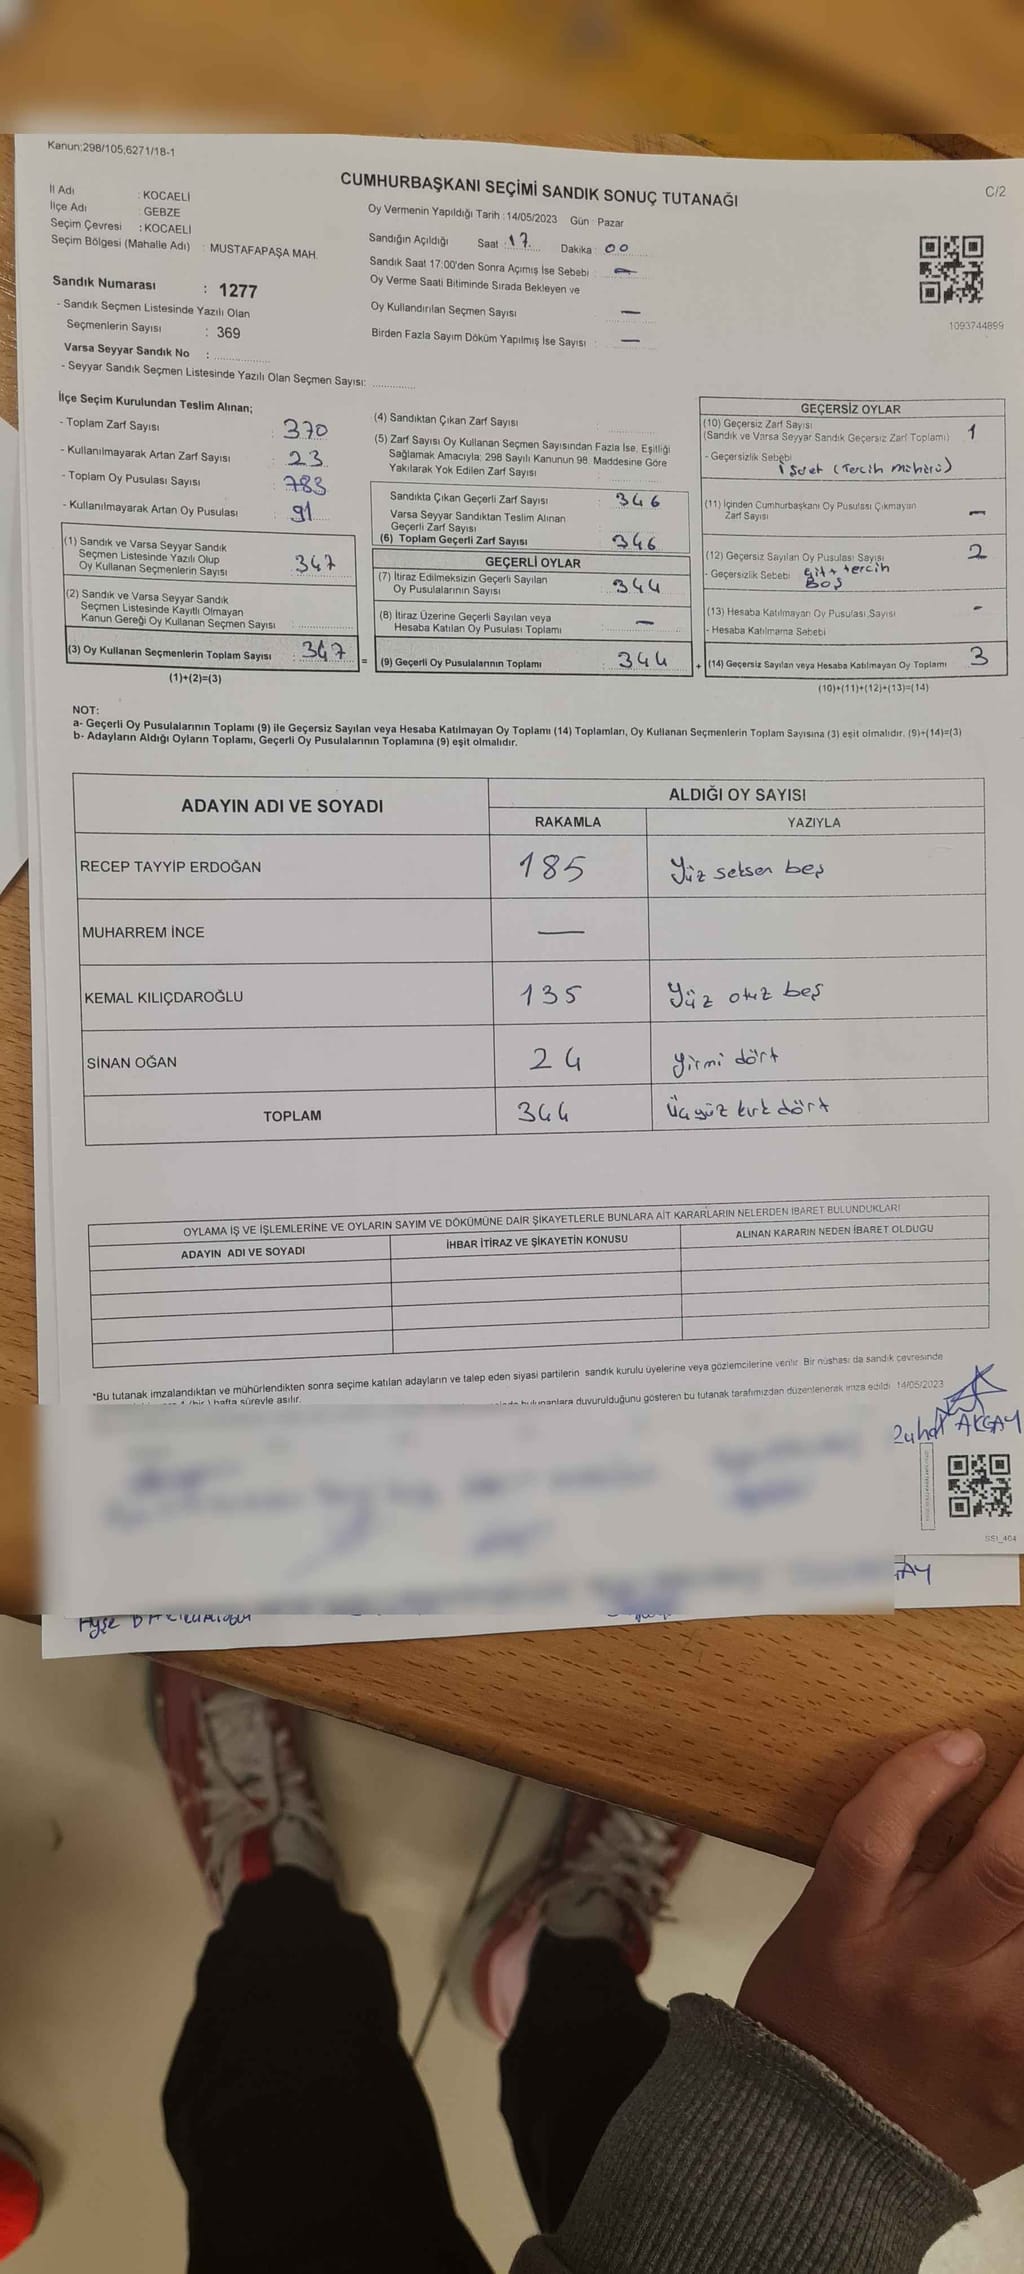 Kanun:298/105;6271/18-1
CUMHURBAŞKANI SEÇİMİ SANDIK SONUÇ TUTANAĞI
C/2
İl Adı : KOCAELİ
İlçe Adı : GEBZE
Seçim Çevresi : KOCAELİ
Seçim Bölgesi (Mahalle Adı) : MUSTAFAPAŞA MAH.
Sandık Numarası : 1277
- Sandık Seçmen Listesinde Yazılı Olan
Seçmenlerin Sayısı : 369
Varsa Seyyar Sandık No :
- Seyyar Sandık Seçmen Listesinde Yazılı Olan Seçmen Sayısı:
Oy Vermenin Yapıldığı Tarih : 14/05/2023 Gün : Pazar
Sandığın Açıldığı Saat : 17 Dakika : 00
Sandık Saat 17:00'den Sonra Açımış İse Sebebi : —
Oy Verme Saati Bitiminde Sırada Bekleyen ve
Oy Kullandırılan Seçmen Sayısı : —
Birden Fazla Sayım Döküm Yapılmış İse Sayısı : —
1093744899
İlçe Seçim Kurulundan Teslim Alınan;
- Toplam Zarf Sayısı : 370
- Kullanılmayarak Artan Zarf Sayısı : 23
- Toplam Oy Pusulası Sayısı : 783
- Kullanılmayarak Artan Oy Pusulası : 91
(1) Sandık ve Varsa Seyyar Sandık
Seçmen Listesinde Yazılı Olup
Oy Kullanan Seçmenlerin Sayısı : 347
(2) Sandık ve Varsa Seyyar Sandık
Seçmen Listesinde Kayıtlı Olmayan
Kanun Gereği Oy Kullanan Seçmen Sayısı :
(3) Oy Kullanan Seçmenlerin Toplam Sayısı : 347
(1)+(2)=(3)
(4) Sandıktan Çıkan Zarf Sayısı :
(5) Zarf Sayısı Oy Kullanan Seçmen Sayısından Fazla İse, Eşitliği
Sağlamak Amacıyla; 298 Sayılı Kanunun 98. Maddesine Göre
Yakılarak Yok Edilen Zarf Sayısı :
Sandıkta Çıkan Geçerli Zarf Sayısı : 346
Varsa Seyyar Sandıktan Teslim Alınan
Geçerli Zarf Sayısı :
(6) Toplam Geçerli Zarf Sayısı : 346
GEÇERLİ OYLAR
(7) İtiraz Edilmeksizin Geçerli Sayılan
Oy Pusulalarının Sayısı : 344
(8) İtiraz Üzerine Geçerli Sayılan veya
Hesaba Katılan Oy Pusulası Toplamı : —
= (9) Geçerli Oy Pusulalarının Toplamı : 344
GEÇERSİZ OYLAR
(10) Geçersiz Zarf Sayısı 1
(Sandık ve Varsa Seyyar Sandık Geçersiz Zarf Toplamı)
- Geçersizlik Sebebi işaret (Tercih mührü)
(11) İçinden Cumhurbaşkanı Oy Pusulası Çıkmayan —
Zarf Sayısı
(12) Geçersiz Sayılan Oy Pusulası Sayısı 2
- Geçersizlik Sebebi tercih
Boş
(13) Hesaba Katılmayan Oy Pusulası Sayısı -
- Hesaba Katılmama Sebebi
+ (14) Geçersiz Sayılan veya Hesaba Katılmayan Oy Toplamı 3
(10)+(11)+(12)+(13)=(14)
NOT:
a- Geçerli Oy Pusulalarının Toplamı (9) ile Geçersiz Sayılan veya Hesaba Katılmayan Oy Toplamı (14) Toplamları, Oy Kullanan Seçmenlerin Toplam Sayısına (3) eşit olmalıdır. (9)+(14)=(3)
b- Adayların Aldığı Oyların Toplamı, Geçerli Oy Pusulalarının Toplamına (9) eşit olmalıdır.
ADAYIN ADI VE SOYADI ALDIĞI OY SAYISI
RAKAMLA YAZIYLA
RECEP TAYYİP ERDOĞAN 185 Yüz seksen beş
MUHARREM İNCE —
KEMAL KILIÇDAROĞLU 135 Yüz otuz beş
SİNAN OĞAN 24 yirmi dört
TOPLAM 344 Üçyüz kırk dört
OYLAMA İŞ VE İŞLEMLERİNE VE OYLARIN SAYIM VE DÖKÜMÜNE DAİR ŞİKAYETLERLE BUNLARA AİT KARARLARIN NELERDEN İBARET BULUNDUKLARI
ADAYIN ADI VE SOYADI İHBAR İTİRAZ VE ŞİKAYETİN KONUSU ALINAN KARARIN NEDEN İBARET OLDUĞU
*Bu tutanak imzalandıktan ve mühürlendikten sonra seçime katılan adayların ve talep eden siyasi partilerin sandık kurulu üyelerine veya gözlemcilerine verilir. Bir nüshası da sandık çevresinde
hafta süreyle asılır. bulunanlara duyurulduğunu gösteren bu tutanak tarafımızdan düzenlenerek imza edildi. 14/05/2023
AKÇAY
SSI_404
Ayşe